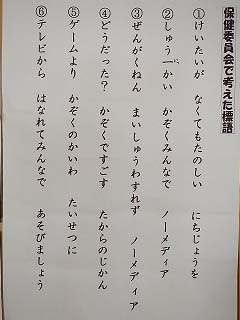 保健委員会で考えた標語
①けいたいが　なくてもたのしい　にちじょうを
②しゅう一かい　かぞくみんなで　ノーメディア
③ぜんがくねん　まいしゅうわすれず　ノーメディア
④どうだった？　かぞくですごす　たからのじかん
⑤ゲームより　かぞくのかいわ　たいせつに
⑥テレビから　はなれてみんなで　あそびましょう